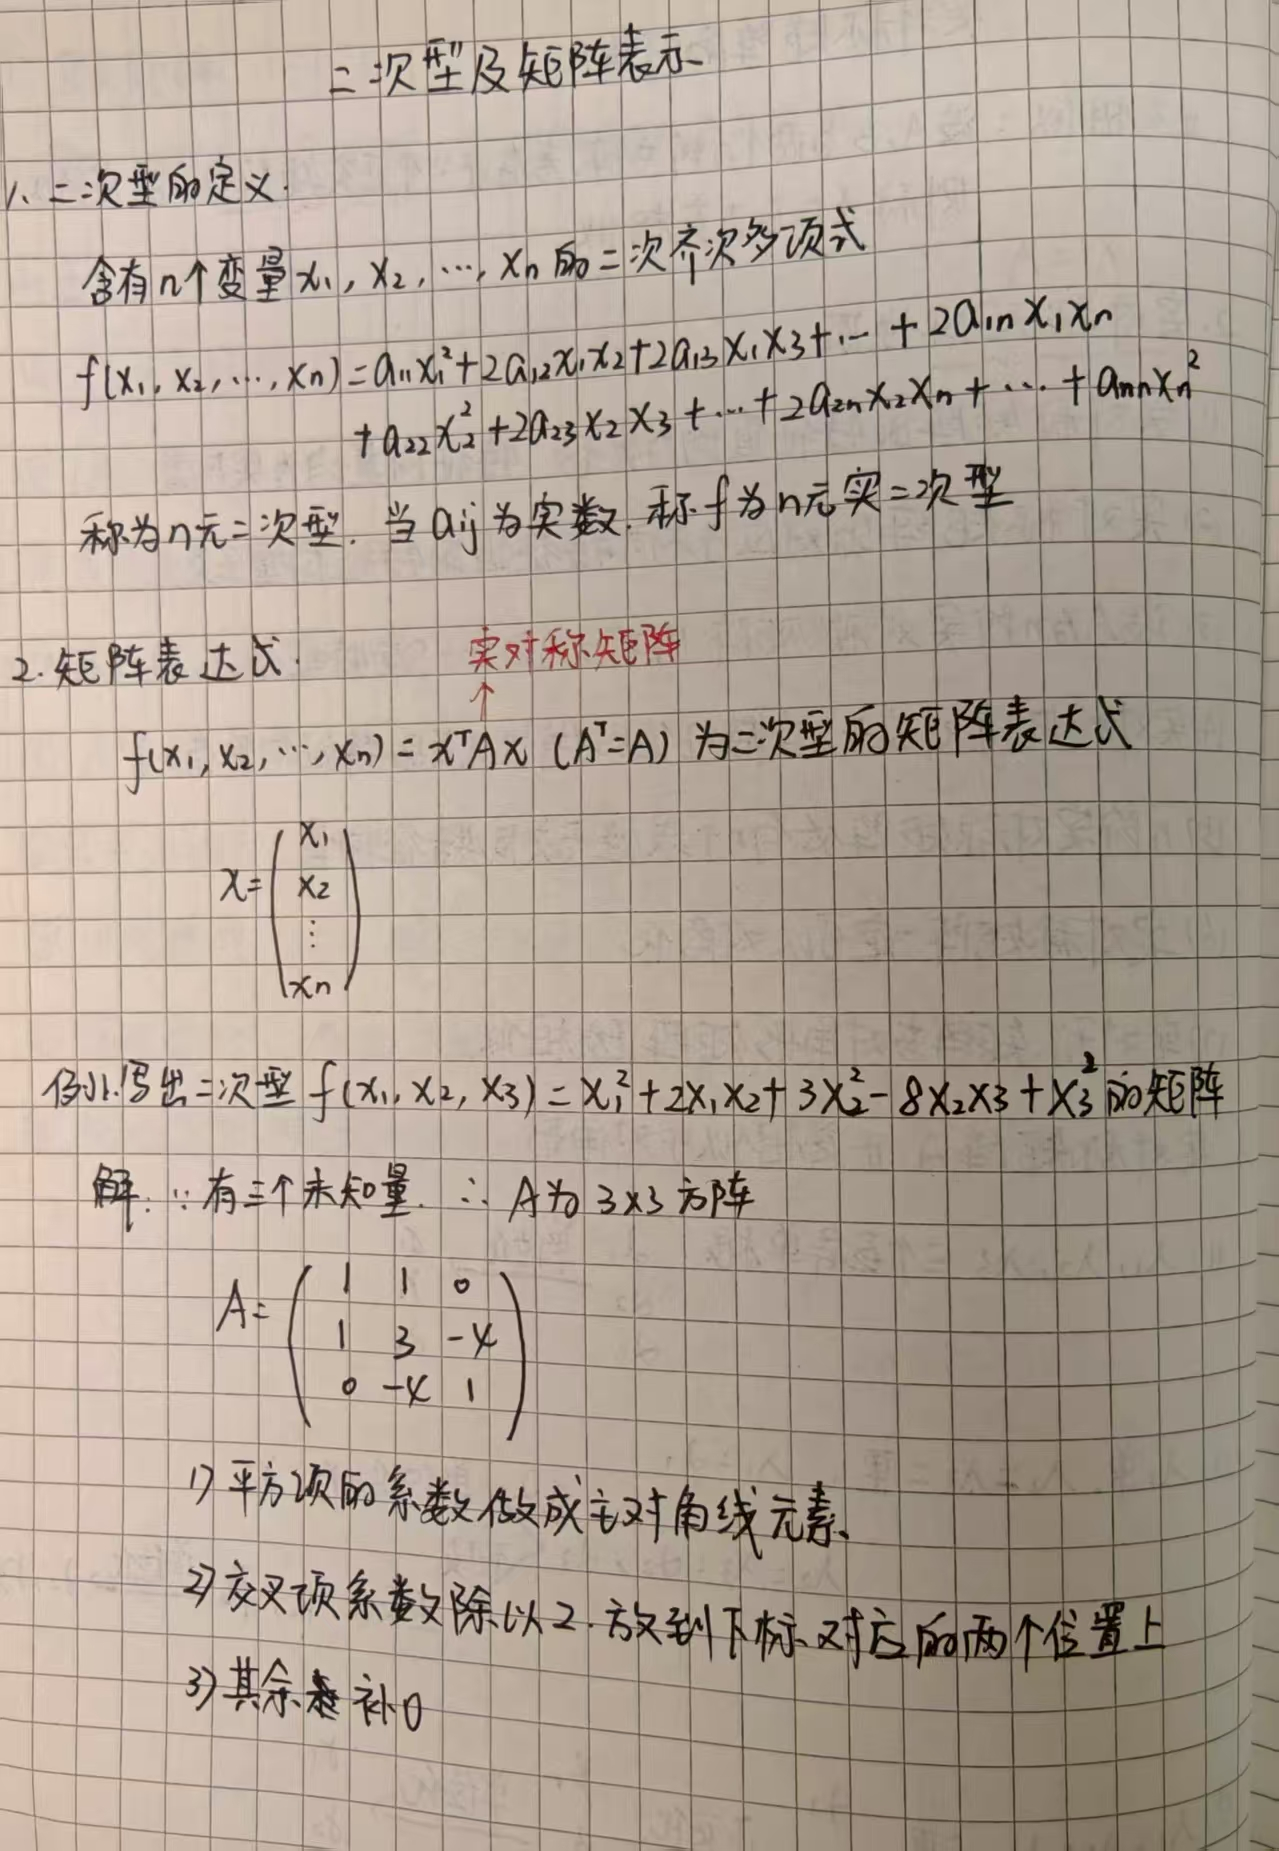 二次型及矩阵表示
1、二次型的定义.
含有n个变量x₁, x₂, ⋯, xₙ的二次齐次多项式
f(x₁, x₂, ⋯, xₙ)=a₁₁x₁²+2a₁₂x₁x₂+2a₁₃x₁x₃+⋯+2a₁ₙx₁xₙ
+a₂₂x₂²+2a₂₃x₂x₃+⋯+2a₂ₙx₂xₙ+⋯+aₙₙxₙ²
称为n元二次型. 当aij为实数. 称f为n元实二次型
2. 矩阵表达式.
实对称矩阵
↑
f(x₁, x₂, ⋯, xₙ)=xᵀAx (Aᵀ=A) 为二次型的矩阵表达式
x=(x₁
x₂
⋮
xₙ)
例1.写出二次型f(x₁, x₂, x₃)=x₁²+2x₁x₂+3x₂²-8x₂x₃+x₃²的矩阵
解: ∵有三个未知量. ∴A为3×3方阵
A=(1 1 0
1 3 -4
0 -4 1)
1) 平方项的系数做成主对角线元素.
2) 交叉项系数除以2. 放到下标对应的两个位置上
3) 其余 补0